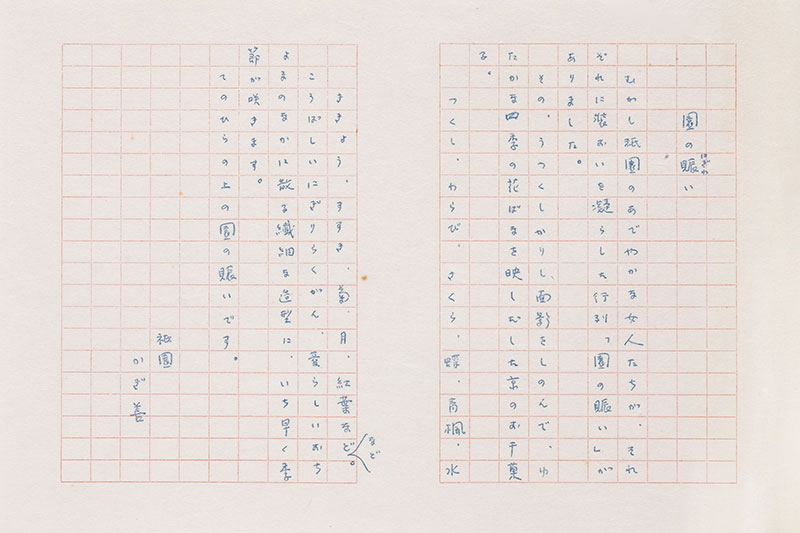 園の賑い
にぎわ
むかし祇園のあでやかな女人たちが、それ
ぞれに装おいを凝らした行列「園の賑い」が
ありました。
その、うつくしかりし面影をしのんで、ゆ
たかな四季の花ばなを映しだした京のお干菓
子。
つくし、わらび、さくら、蝶、青楓、水
ききょう、すすき、菊、月、紅葉など。
など
こうばしいにぎりらくがん、愛らしいおち
よまのなかに散る繊細な造型に、いち早く季
節が咲きます。
てのひらの上の園の賑いです。
祇園
かぎ善